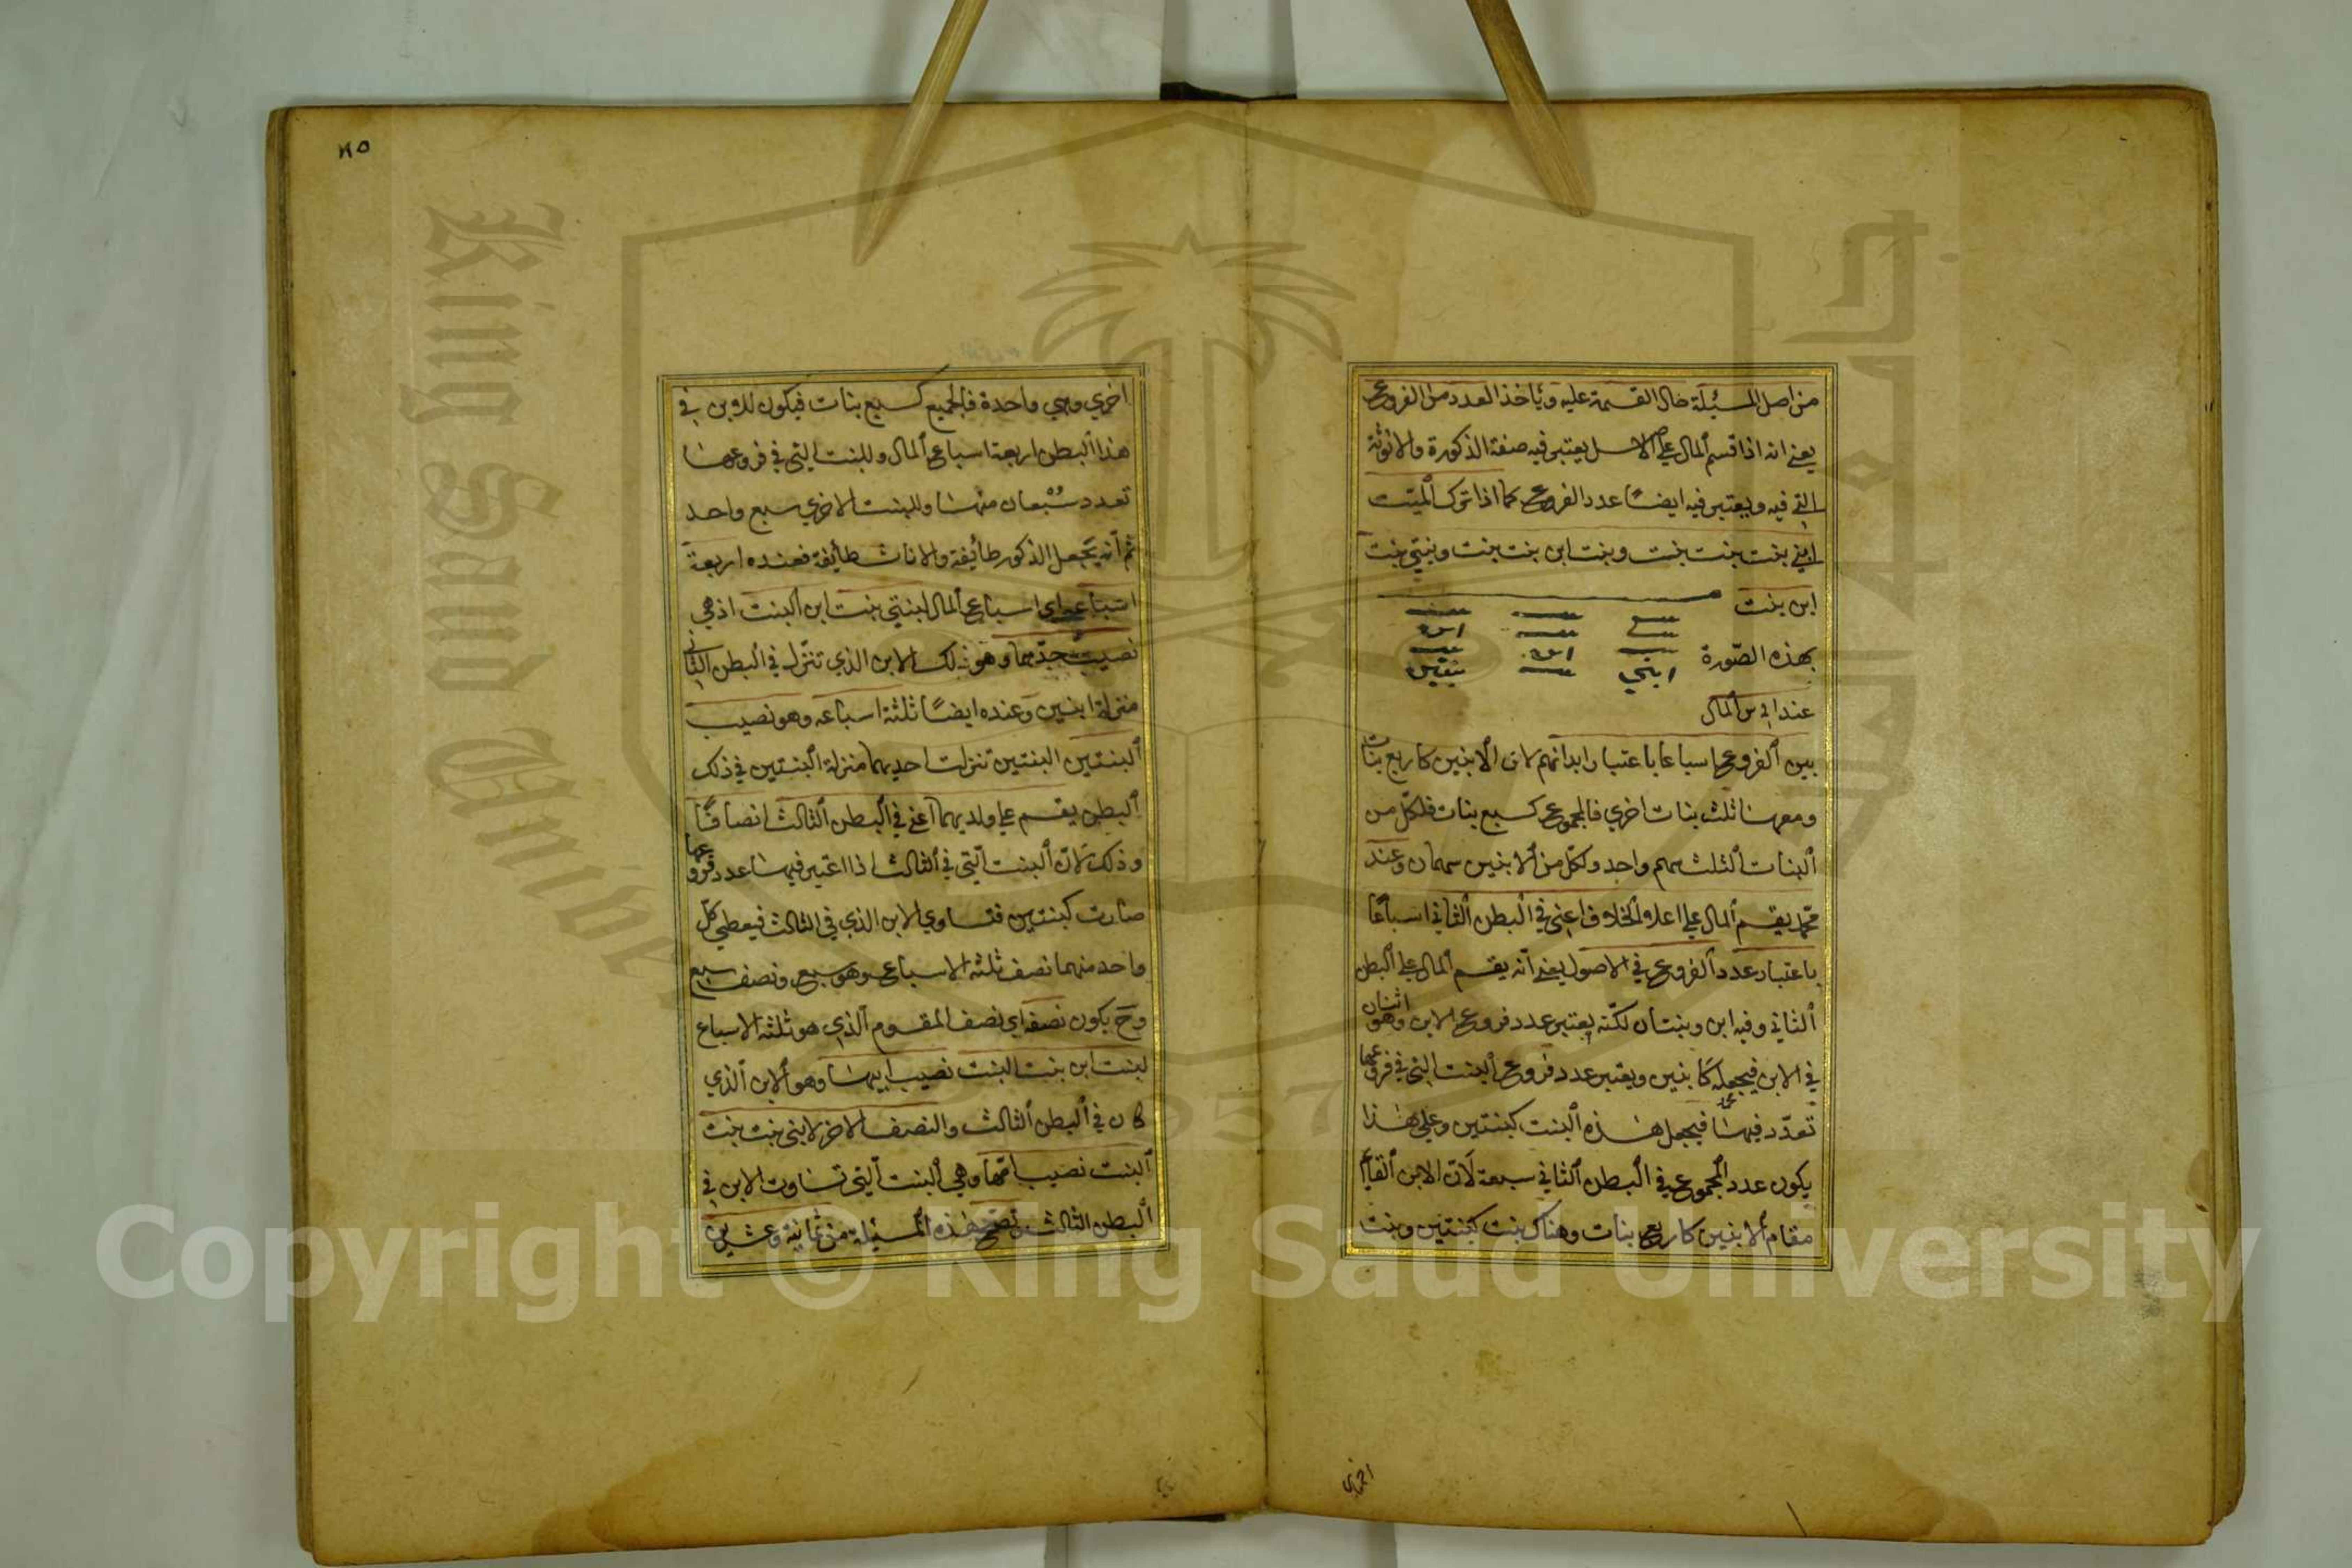 من اصل المسئلة حال القسمة عليه وياخذ العدد من الفروع
يعني انه اذا قسم المال على الاصل يعتبر فيه صفة الذكورة والانوثة
التي فيه ويعتبر فيه ايضًا عدد الفروع كما اذا ترك الميت
ابني بنت بنت بنت وبنت ابن بنت بنت وبنتي بنت
ابن بنت
بنت بنت بنت
بنت بنت ابن
بهذه الصّورة بنت ابن بنت
ابني بنت بنتين
المال
بين الفروع اسباعا باعتبار ابدانهم لان الابنين كاربع بنات
ومعهنا ثلث بنات اخري فالمجموع كسبع بنات فلكلّ من
البنات الثلث سهم واحد ولكل من الابنين سهمان وعند
محمّد يقسم المال على اعلا الخلاف اعني في البطن الثاني اسباعًا
باعتبار عدد الفروع في الاصول يعني انه يقسم المال على البطن
الثاني وفيه ابن وبنتان لكنّه يعتبر عدد فروع الابن وهو اثنان
في الابن فيجعله كابنين ويعتبر عدد فروع البنت التي في فروعها
تعدّد فيها فيجعل هذه البنت كبنتين وعلى هذا
يكون عدد المجموع في البطن الثاني سبعة لانّ الابن القايم
مقام الابنين كاربع بنات وهناك بنت كبنتين وبنت
اخرى
٤٥
اخري وهي واحدة فالجميع كسبع بنات فيكون للابن في
هذا البطن اربعة اسباع المال وللبنت التي في فروعها
تعدد سُبْعان منها وللبنت الاخري سبع واحد
ثم انه يجعل الذكور طائفة والاناث طائفة فعنده اربعة
اسباعه اي اسباع المال لبنتي بنت ابن البنت اذ هي
نصيب جدّهما وهو ذلك الابن الذي تنزل في البطن الثاني
منزلة ابنين وعنده ايضًا ثلثة اسباعه وهو نصيب
البنتين البنتين تنزلت احديهما منزلة البنتين في ذلك
البطن يقسم على ولديهما اعني في البطن الثالث انصافًا
وذلك لانّ البنت التي في الثالث اذا اعتبر فيها عدد فروعها
صارت كبنتين فتساوي الابن الذي في الثالث فيعطي كلّ
واحد منهما نصف ثلثة الاسباع وهو سبع ونصف سبع
وح يكون نصفه اي نصف المقسوم الذي هو ثلثة الاسباع
لبنت ابن بنت البنت نصيب ابيها وهو الابن الذي
كان في البطن الثالث والنصف الاخر لابني بنت بنت
البنت نصيب امّها وهي البنت التي تساوت الابن في
البطن الثالث تصحّ هذه المسئلة من ثمانية وعشرين
King Saud University
1957
Copyright © King Saud University